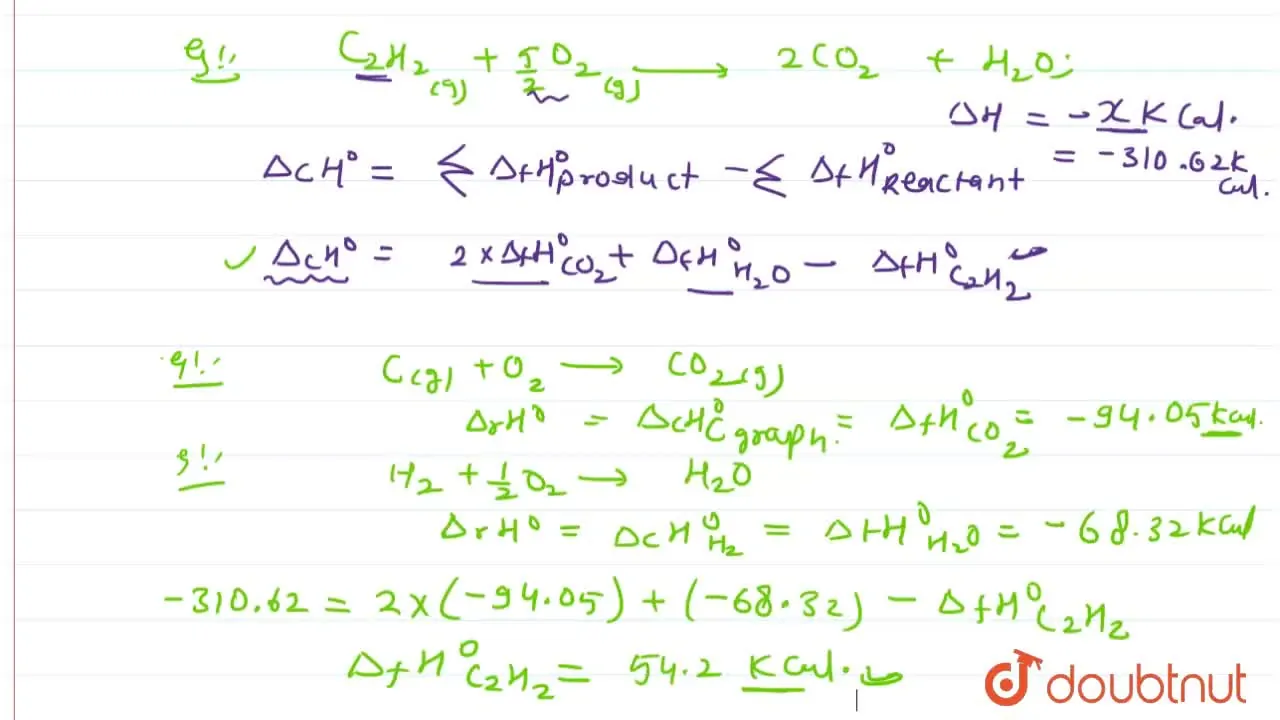 C₂H₂(g) + 5/2 O₂(g) ⟶ 2CO₂ + H₂O;
ΔH = -x KCal.
= -310.62 K Cal.
ΔCH⁰ = Σ ΔfH⁰product - Σ ΔfH⁰Reactant
✓ ΔcH⁰ = 2×ΔfH⁰CO₂ + ΔfH⁰H₂O - ΔfH⁰C₂H₂
C(g) + O₂ ⟶ CO₂(g)
ΔrH⁰ = ΔCH⁰C graph. = ΔfH⁰CO₂ = -94.05 kCal.
H₂ + 1/2 O₂ ⟶ H₂O
ΔrH⁰ = ΔCH⁰H₂ = ΔfH⁰H₂O = -68.32 KCal
-310.62 = 2×(-94.05) + (-68.32) - ΔfH⁰C₂H₂
ΔfH⁰C₂H₂ = 54.2 KCal.
doubtnut